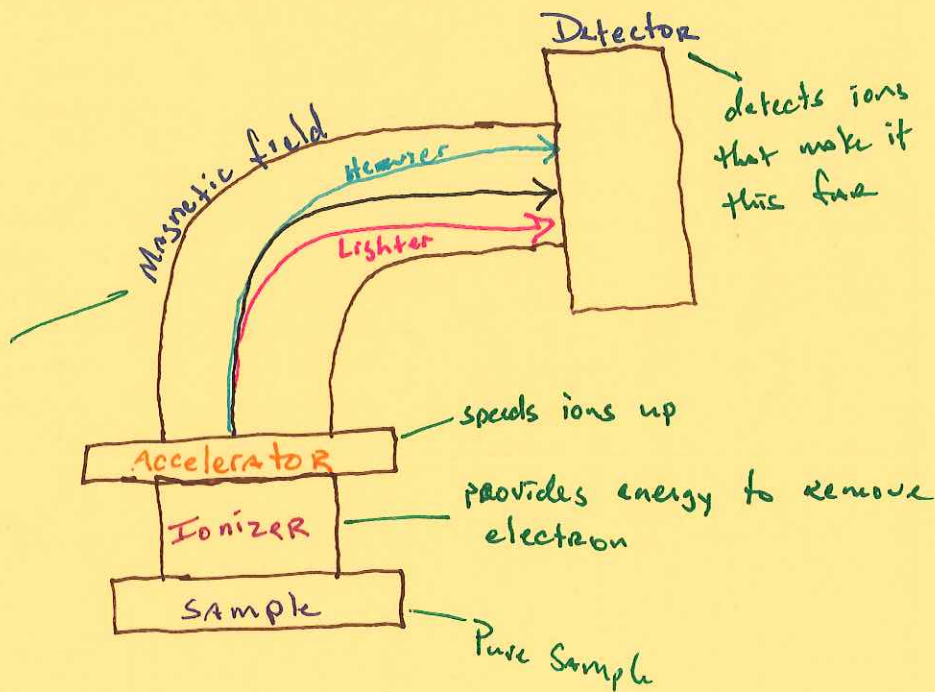 Detector
detects ions
that make it
this far
Magnetic field
Heavier
Lighter
speeds ions up
Accelerator
provides energy to remove
electron
Ionizer
Sample
Pure Sample